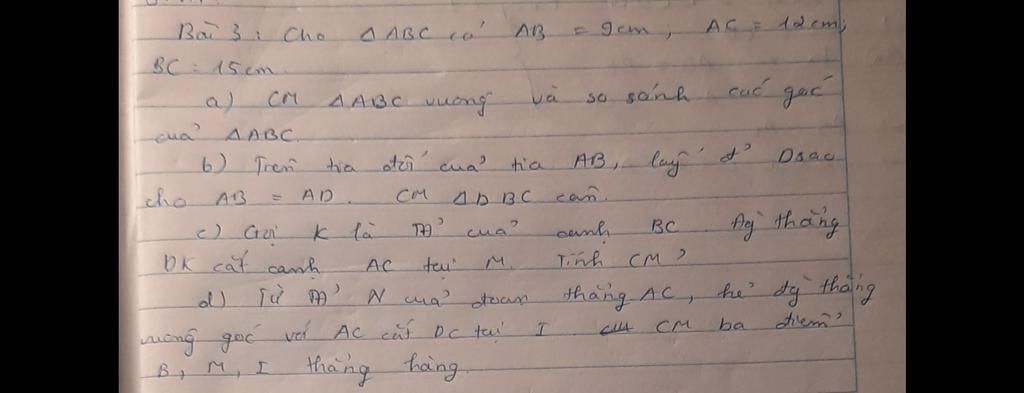 Bài 3: Cho △ABC có AB = 9cm, AC = 12cm,
BC = 15cm.
a) CM △ABC vuông và so sánh các góc
của △ABC.
b) Trên tia đối của tia AB, lấy đ' D sao
cho AB = AD. CM △DBC cân.
c) Gọi K là cuả cạnh BC. Đg` thẳng
DK cắt cạnh AC tại M. Tính CM?
d) Từ N của đoạn thẳng AC, kẻ đg` thẳng
vuông góc với AC cắt DC tại I. CM ba điểm
B, M, I thẳng hàng.